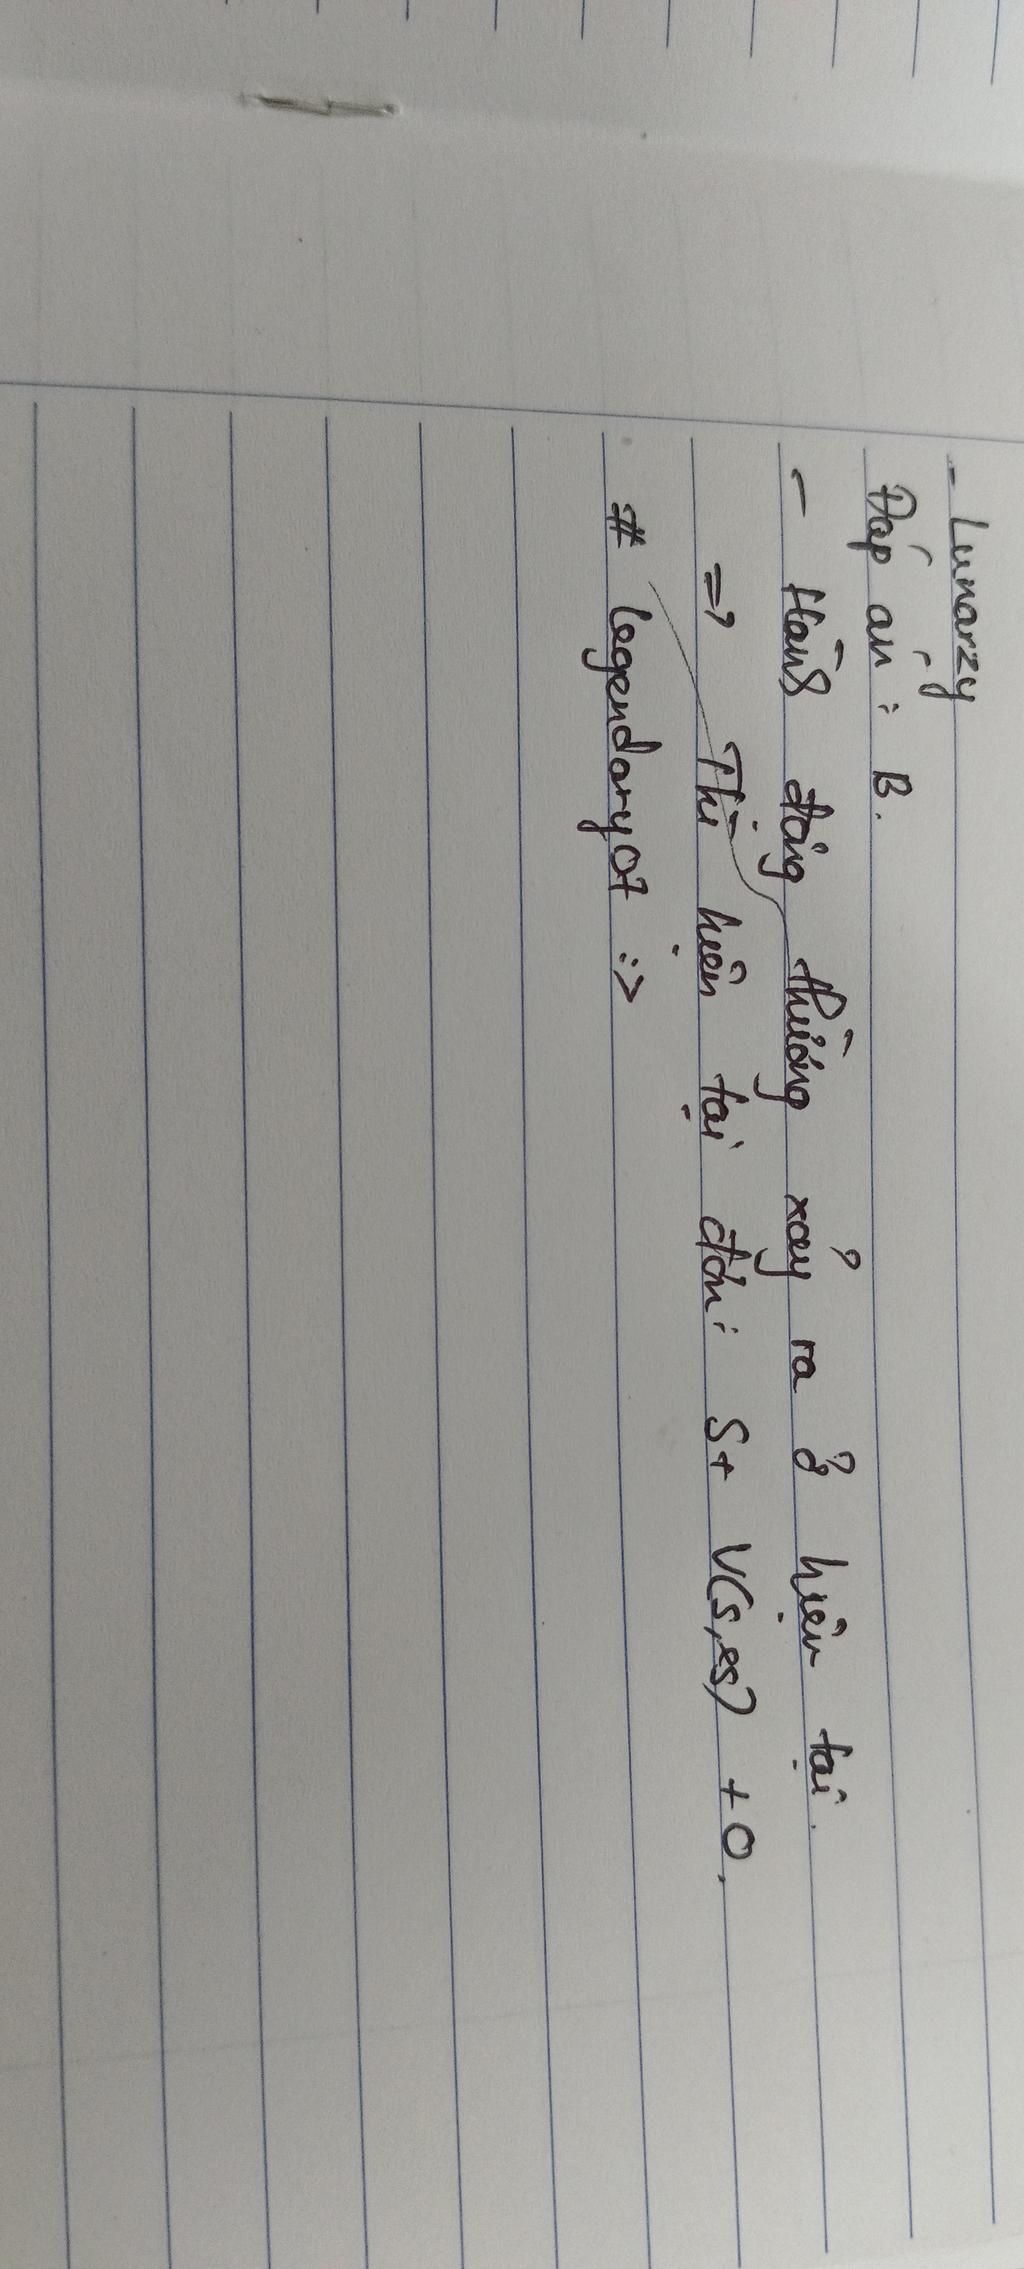 - Lunarzy
Đáp án : B.
- Hành động thường xảy ra ở hiện tại.
=> Thì hiện tại đơn: S + V(s,es) + O.
# legendary07 :>